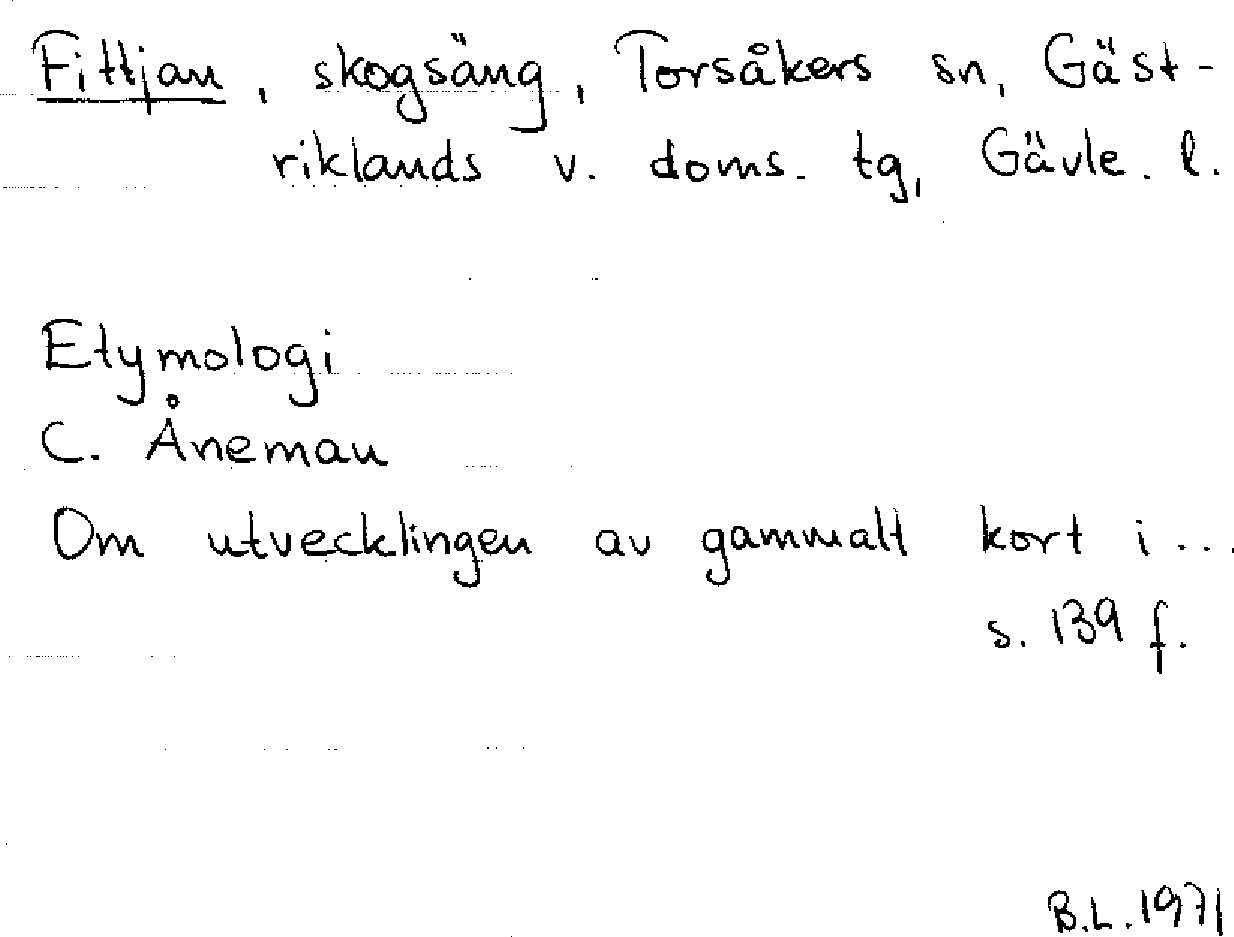 Fittjan, skogsäng, Torsåkers sn, Gäst-
riklands v. doms. tg, Gävle. l.
Etymologi
C. Åneman
Om utvecklingen av gammalt kort i...
s. 139 f.
B.L. 1971